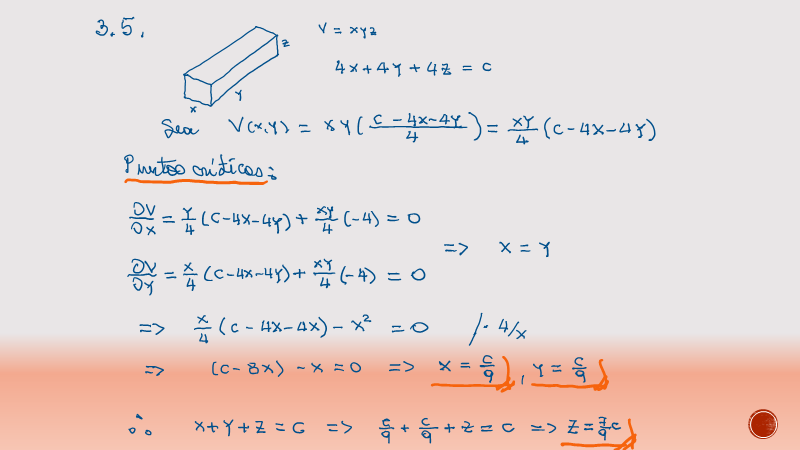 3.5.
V = xyz
z
4x+4y+4z = c
x
y
Sea V(x,y) = xy(\frac{c-4x-4y}{4}) = \frac{xy}{4}(c-4x-4y)
Puntos críticos:
\frac{∂V}{∂x} = \frac{y}{4}(c-4x-4y)+\frac{xy}{4}(-4) = 0
=> x = y
\frac{∂V}{∂y} = \frac{x}{4}(c-4x-4y)+\frac{xy}{4}(-4) = 0
=> \frac{x}{4}(c-4x-4x)-x² = 0 /· 4/x
=> (c-8x)-x=0 => x = \frac{c}{9}, y = \frac{c}{9}
∴ x+y+z = c => \frac{c}{9}+\frac{c}{9}+z = c => z = \frac{7}{9}c